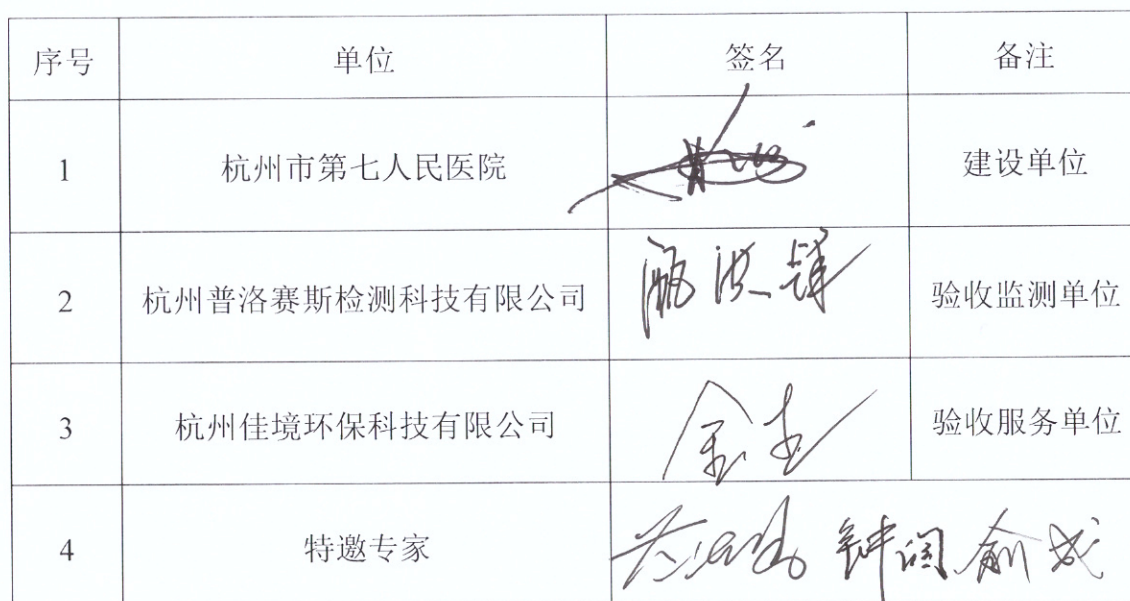 序号 单位 签名 备注
1 杭州市第七人民医院 建设单位
2 杭州普洛赛斯检测科技有限公司 验收监测单位
3 杭州佳境环保科技有限公司 验收服务单位
4 特邀专家